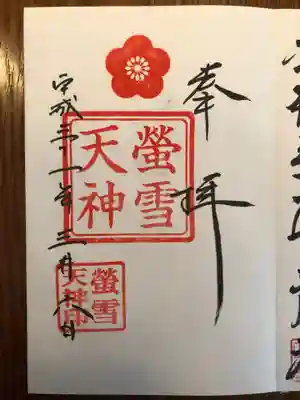 奉拝
螢雪
天神
螢雪
天神印
平成三十一年三月八日